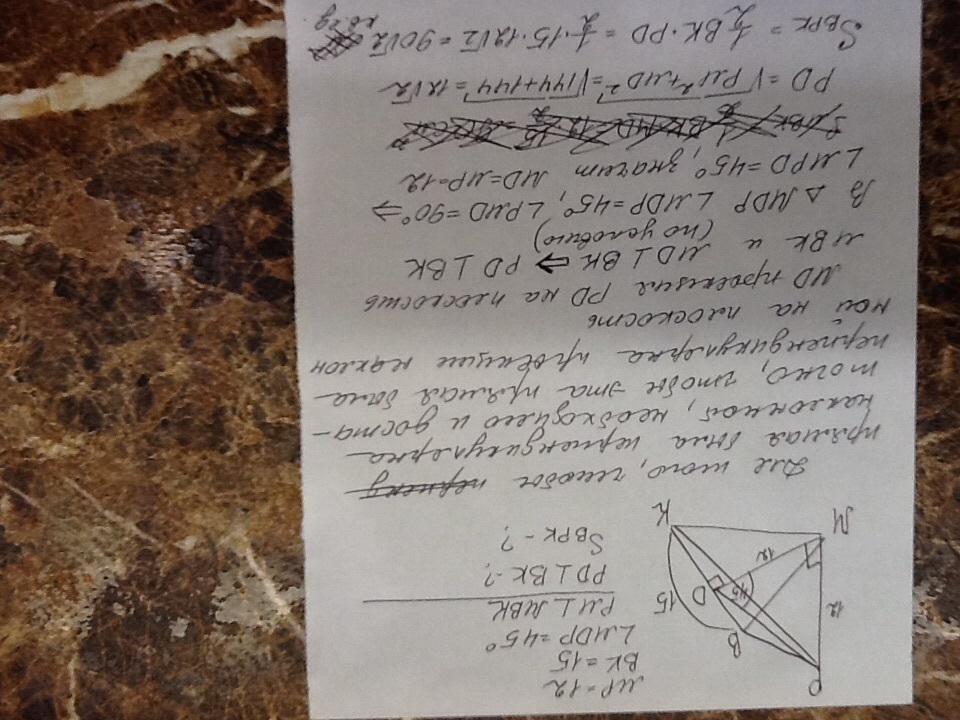 P
12
M
12
45
D
B
15
K
MP=12
BK=15
∠MDP=45°
PM⊥MBK
PD⊥BK-?
SBPK-?
Для того, чтобы
прямая была перпендикулярна
наклонной, необходимо и доста-
точно, чтобы эта прямая была
перпендикулярна проекции наклон
ной на плоскость
MD проекция PD на плоскость
MBK и MD⊥BK ⇒ PD⊥BK
(по условию)
В △MDP ∠MDP=45°, ∠PMD=90° ⇒
∠MPD=45°, значит MD=MP=12
PD = √PM²+MD² = √144+144 = 12√2
SBPK = ½BK·PD = ½·15·12√2 = 90√2